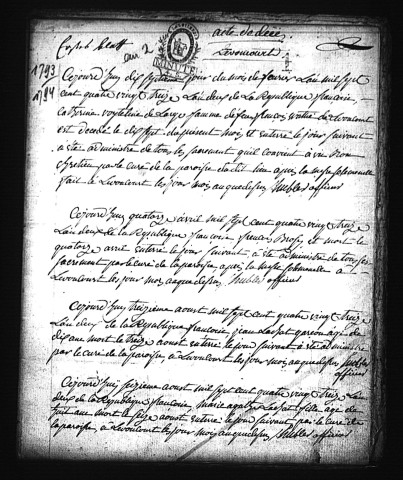 acte de décé
an 2
Levoncourt
1793
n 94
Cejourd'huy dix sept jour du mois de fevrier L'an mil sept
cent quatre vingt treize L'an deux de La Republique francoise,
est decedé le dix sept du present mois, et enterré le jour suivant
a eté administré de tous les sacrement qu'il convient à un Bon
chretien par le curé de la paroisse dudit lieu après la messe solennelle
fait à Levoncourt les jour mois an que dessus officier
Cejourd'huy quatorz avril mil sept cent quatre vingt treize
L'an deux de la Republique francoise et mort le
quatorz avril enterré le jour suivant, a eté administré de tous les
sacrement par le curé de la paroisse, après la messe solennelle à
Levoncourt les jour mois an que dessus officier
Cejourd'huy treizieme aoust mil sept cent quatre vingt treize
L'an deux de la Republique francoise, garcon agé de
dix ans mort le treize aoust enterré le jour suivant a eté administré
par le curé de la paroisse à Levoncourt les jour mois an que dessus
officier
Cejourd'huy seizieme aoust mil sept cent quatre vingt treize L'an
deux de la Republique francoise, marie fille agé de
huit ans mort le seize aoust enterré le jour suivant par le curé de
la paroisse, à Levoncourt les jour mois an que dessus officier